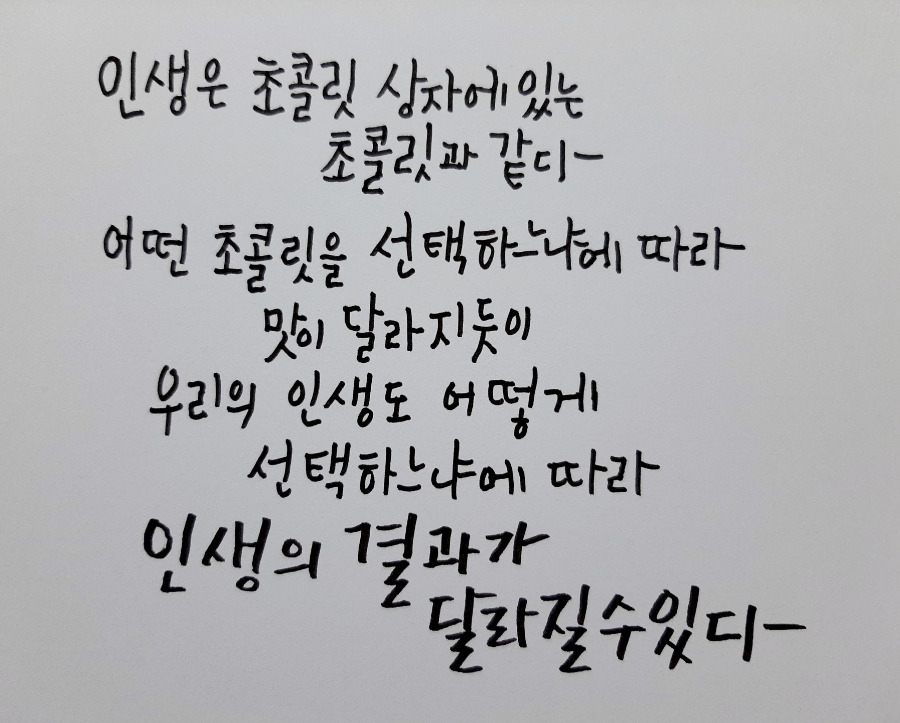 인생은 초콜릿 상자에있는
초콜릿과 같다
어떤 초콜릿을 선택하느냐에 따라
맛이 달라지듯이
우리의 인생도 어떻게
선택하느냐에 따라
인생의 결과가
달라질수있다